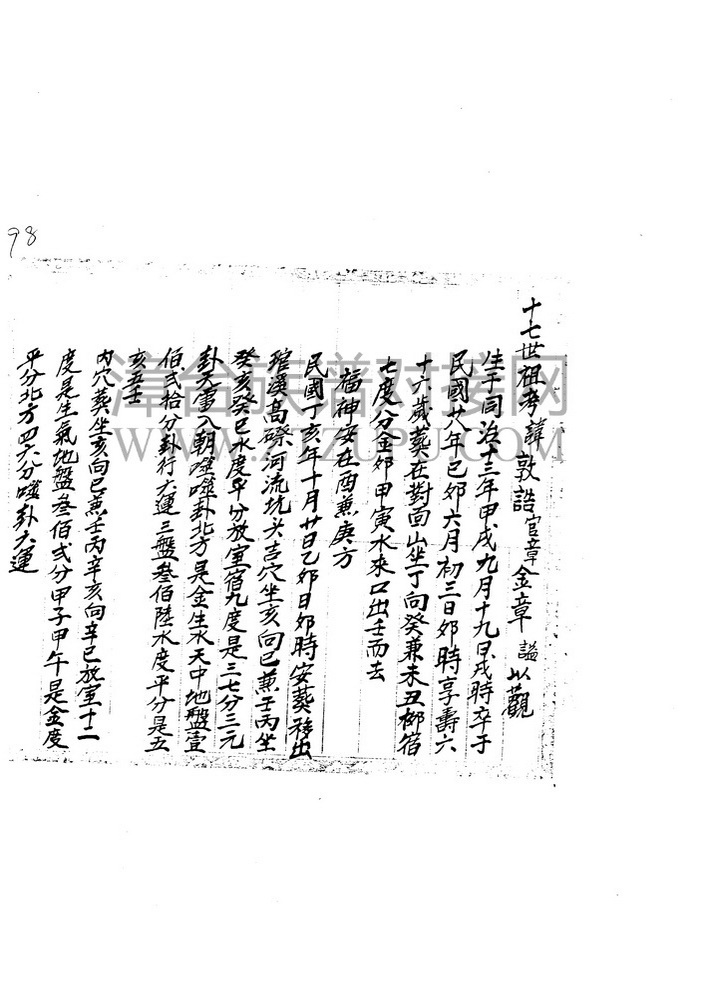 98
十七世祖考諱敦誥官章金章謚以觀
生于同治十三年甲戌九月十九日戌時卒于
民國廿八年己卯六月初三日卯時享壽六
十六歲葬在對面山坐丁向癸兼未丑柳宿
七度分金卯甲寅水來口出壬而去
福神安在酉兼庚方
民國丁亥年十月廿日乙卯日卯時安葬移出
琯溪高磜河流坑头吉穴坐亥向巳兼壬丙坐
癸亥癸巳水度平分放室宿九度是三七分三元
卦天雷入朝噬嗑卦北方是金生水天中地盤壹
佰弍拾分卦行六運三盤叁佰陸水度平分是五
亥五壬
內穴葬坐亥向巳兼壬丙辛亥向辛巳放室十二
度是生氣地盤叁佰弍分甲子甲午是金度
平分北方四六分嗑卦六運
漳台族谱对接网
WWW.ZTZUPU.COM